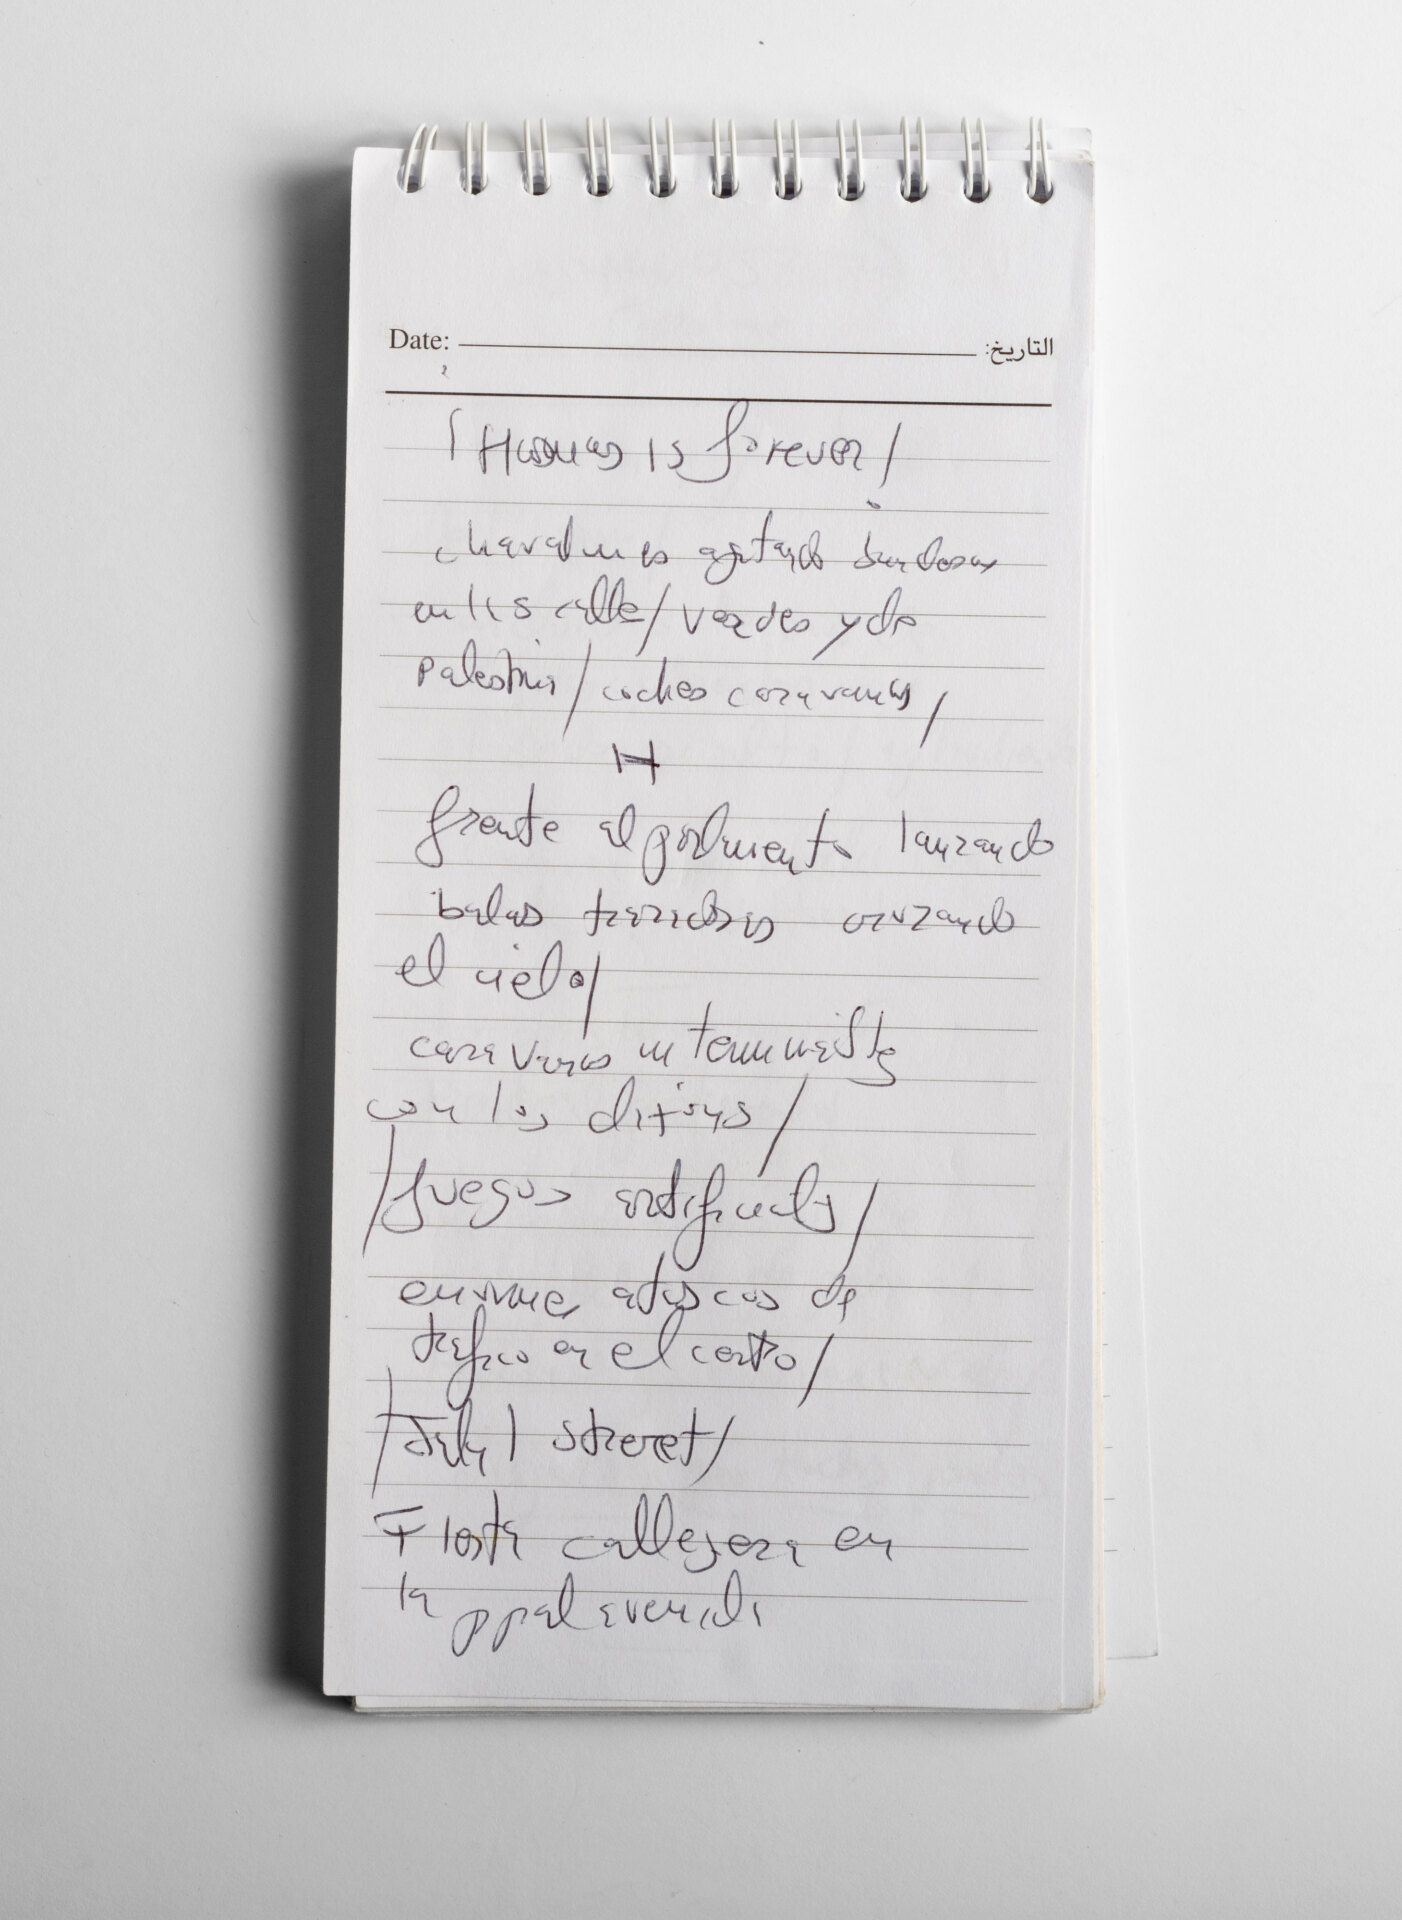 Date: التاريخ:
Hamas is forever/
chavalines agitando banderas
en las calle/ verdes y de
Palestina/ coches caravanas/
H
frente al parlamento lanzando
balas trazadoras cruzando
el cielo/
caravanas interminable
con los
/fuegos artificiales/
enorme atascos de
trafico en el centro/
street/
Fiesta callejera en
la ppal avenida